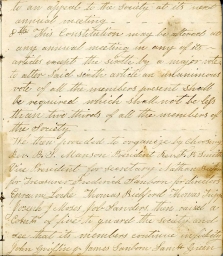 to an appeal to the Society at its next
annual meeting.
8th This Constitution may be altered at
any annual meeting in any of its
articles except the sixth by a major vote
to alter said sixth article an unanimous
vote of all the members present shall
be required which shall not be less
than two thirds of all the members of
the Society.
We then proceeded to organize by choosing
Rev. Manson President Rev.
Vice President for Secretary
for Treasurer Frederick Sanborn
Thomas
Joseph for Sanborn then raised a
Com. of five to guard the Society and
see that its members continue
John Griffin James Sanborn